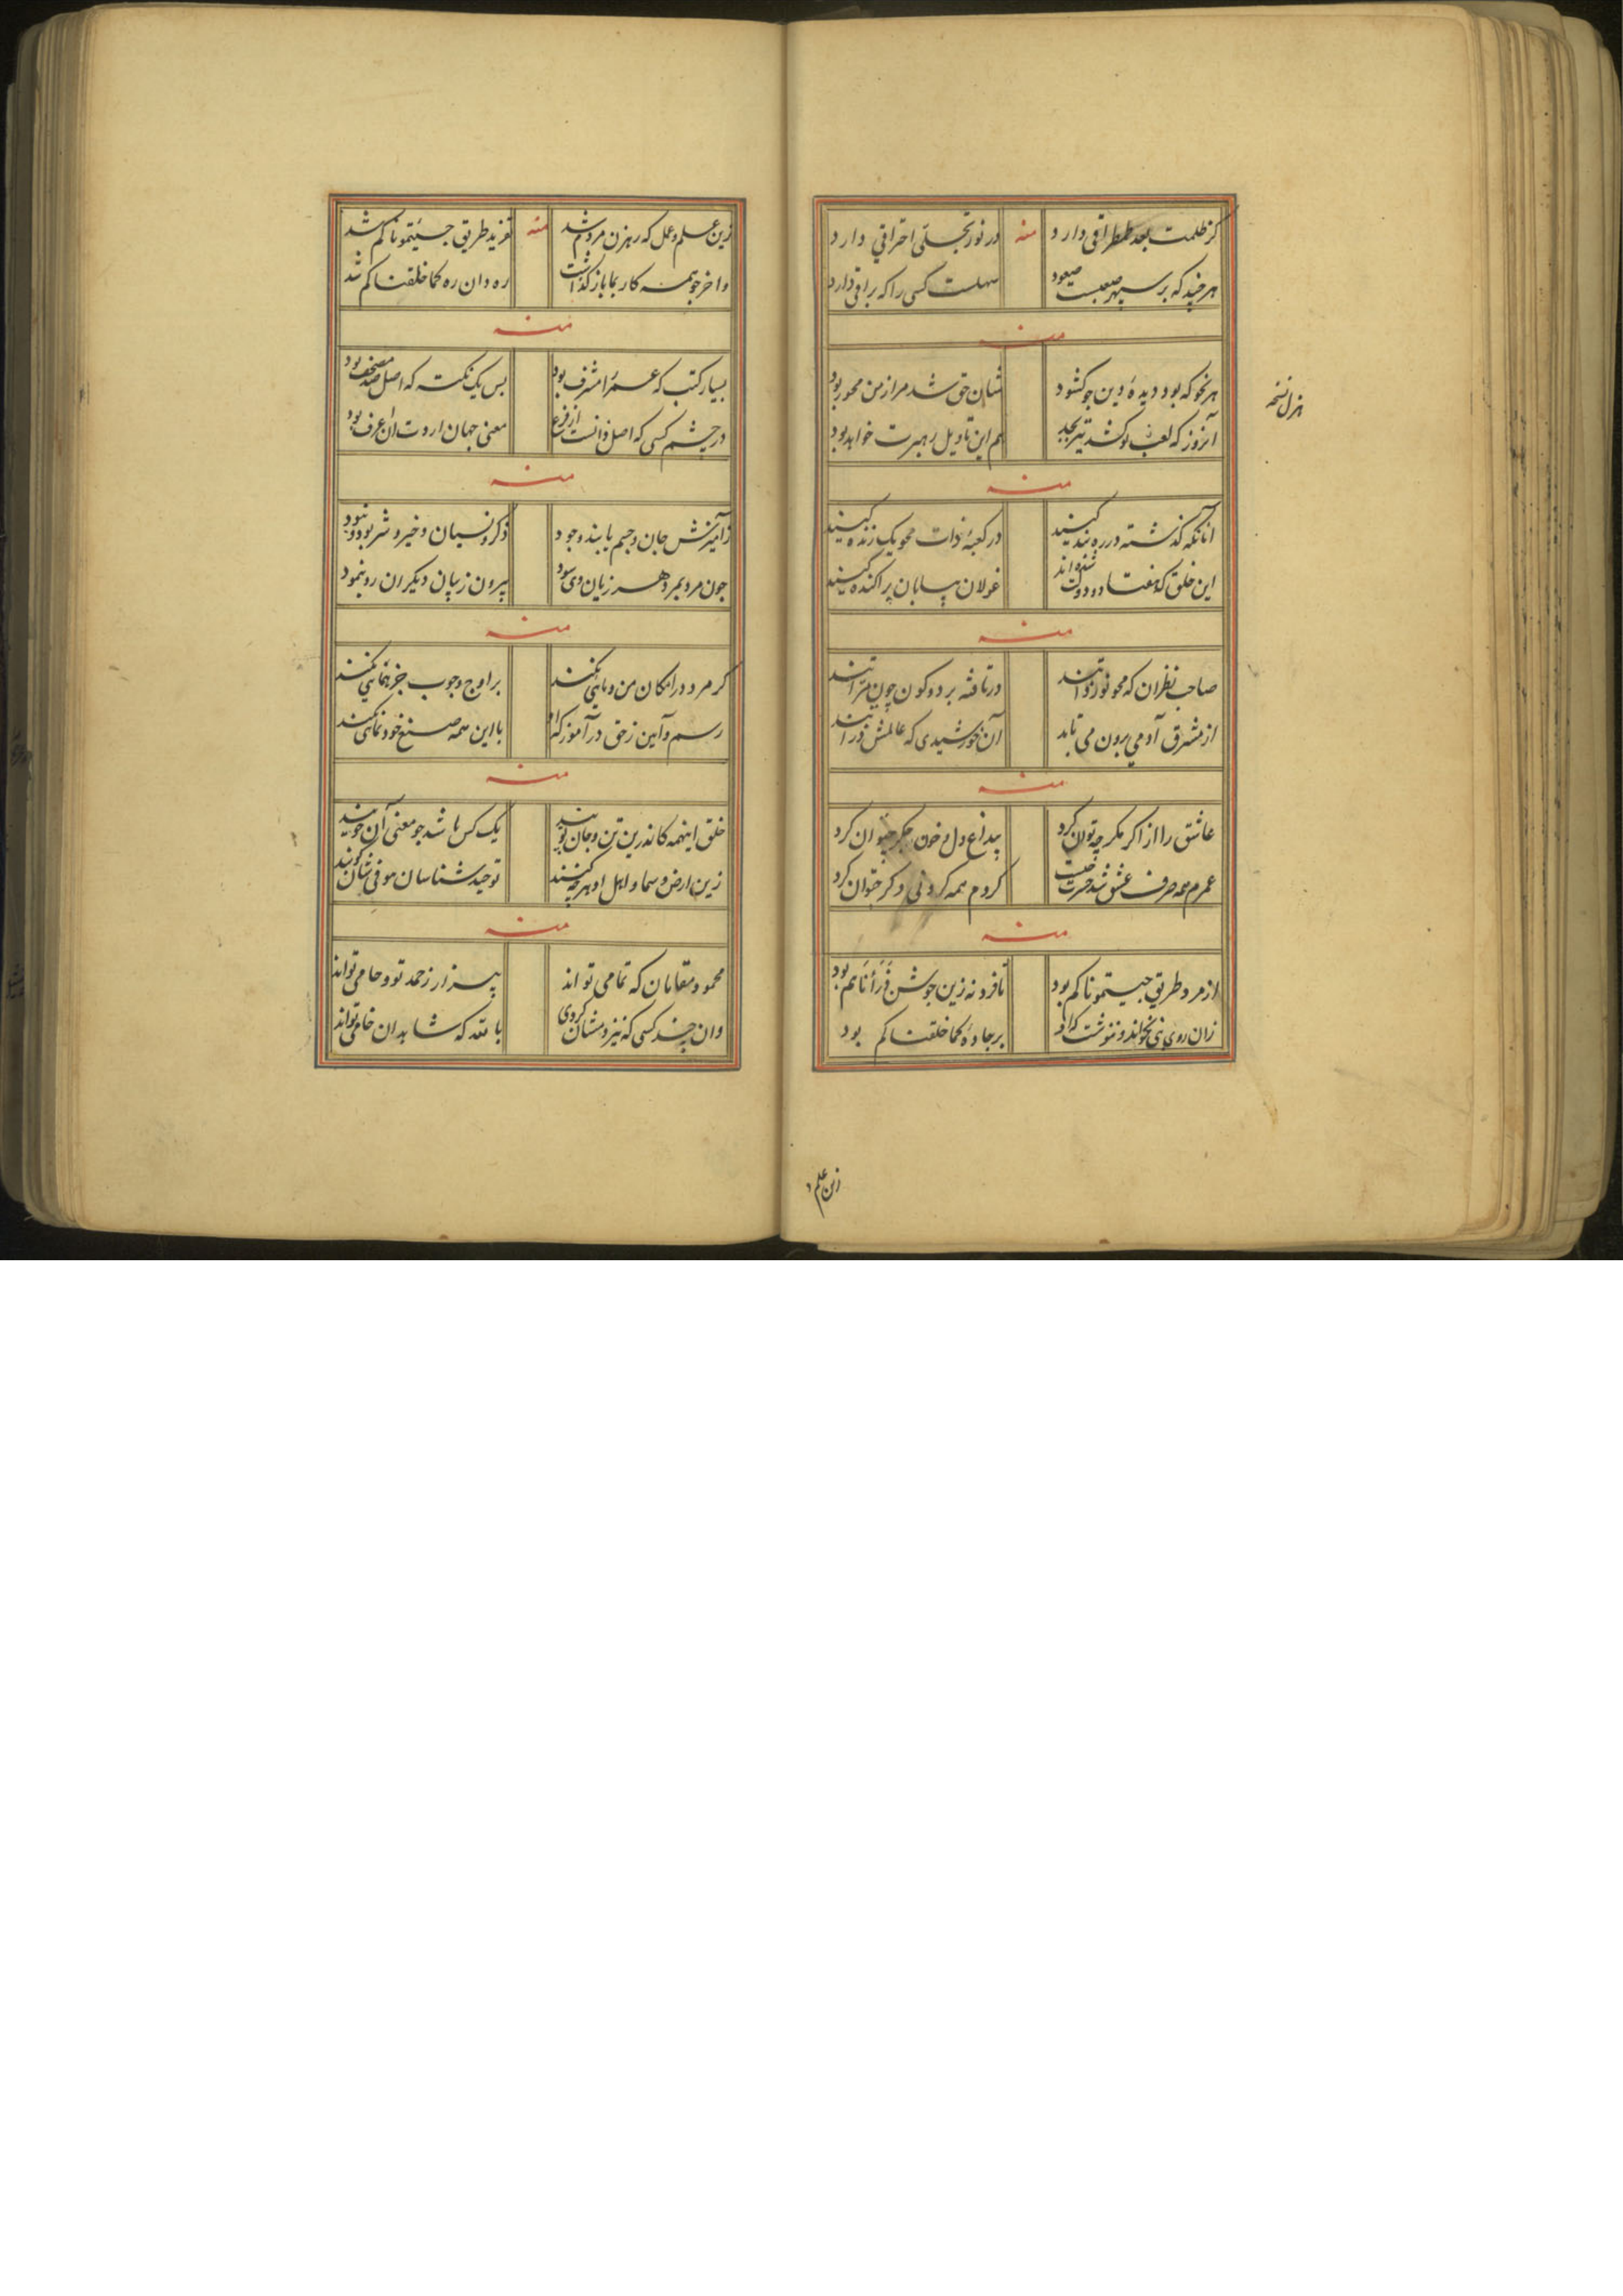 کز ظلمت بعد طمطراقی دارد منه در نور تجلی احتراقی دارد
هر چند که بر سپهر صعبست صعود سهلست کسی را که براقی دارد
منه
هر نحو که بود دیدهٔ دین جو کشود شان حق شد مرا ز من محو ربود
آنروز که لعب تو کشد هم این تاویل رهبرت خواهد بود
هزل نسخه
منه
آنانکه گذشته در ره بنده کیند در کعبهٔ ذات محو یک زنده کیند
این خلق که هفتاد و دو ملت شده اند غولان بیابان پراکنده کیند
منه
صاحب نظران که محو نور ذاتند در تافته بر دو کون چون مرآتند
از مشرق آدمی برون می تابد آن خورشیدی که عالمش ذراتند
منه
عاشق را از اگر مگر چه توان کرد بیداغ دل و خون جگر چتوان کرد
عمرم همه صرف عشق شد حسرت چیست کردم همه کردنی دگر چتوان کرد
منه
از مرد طریق جیتمونا کم بود تا فرد نه زین جوشن ذرأناکم بود
زان روی نبی نخواند و ننوشت که او بر جادهٔ کما خلقناکم بود
زین علم و
زین علم و عمل که رهزن مردم شد منه تفرید طریق جیتمونا کم شد
واخر چو همه کار بما باز گذاشت ره دان ره کما خلقنا کم شد
منه
بسیار کتب که عمر را مشرف بود بس یک نکته که اصل صد مصحف بود
در چشم کسی که اصل دانست از فرع معنی جهان اروت ان اعرف بود
منه
ز آمیزش جان و جسم یابند وجود ذکر و نسیان و خیر و شر بود و نبود
چون مرد بمرد هر زیان وی سود بیرون ز زیان دیگران رو ننمود
منه
گر مرد در امکان من و مائی نکند بر اوج وجوب جز همائی نکند
رسم و آیین ز حق در آموز که او با این همه صنع خود نمائی نکند
منه
خلق اینهمه کاندرین تن و جان پویند یک کس باشد چو معنی آن جویند
زین ارض و سما و اهل او هر چه کنند توحید شناسان موفی شان گویند
منه
محمود مقامان که تمامی تو اند بیزار ز حمد تو و حامی تو اند
وان چند کسی که نیز ومشان کردی بالله که شاهدان خامی تو اند